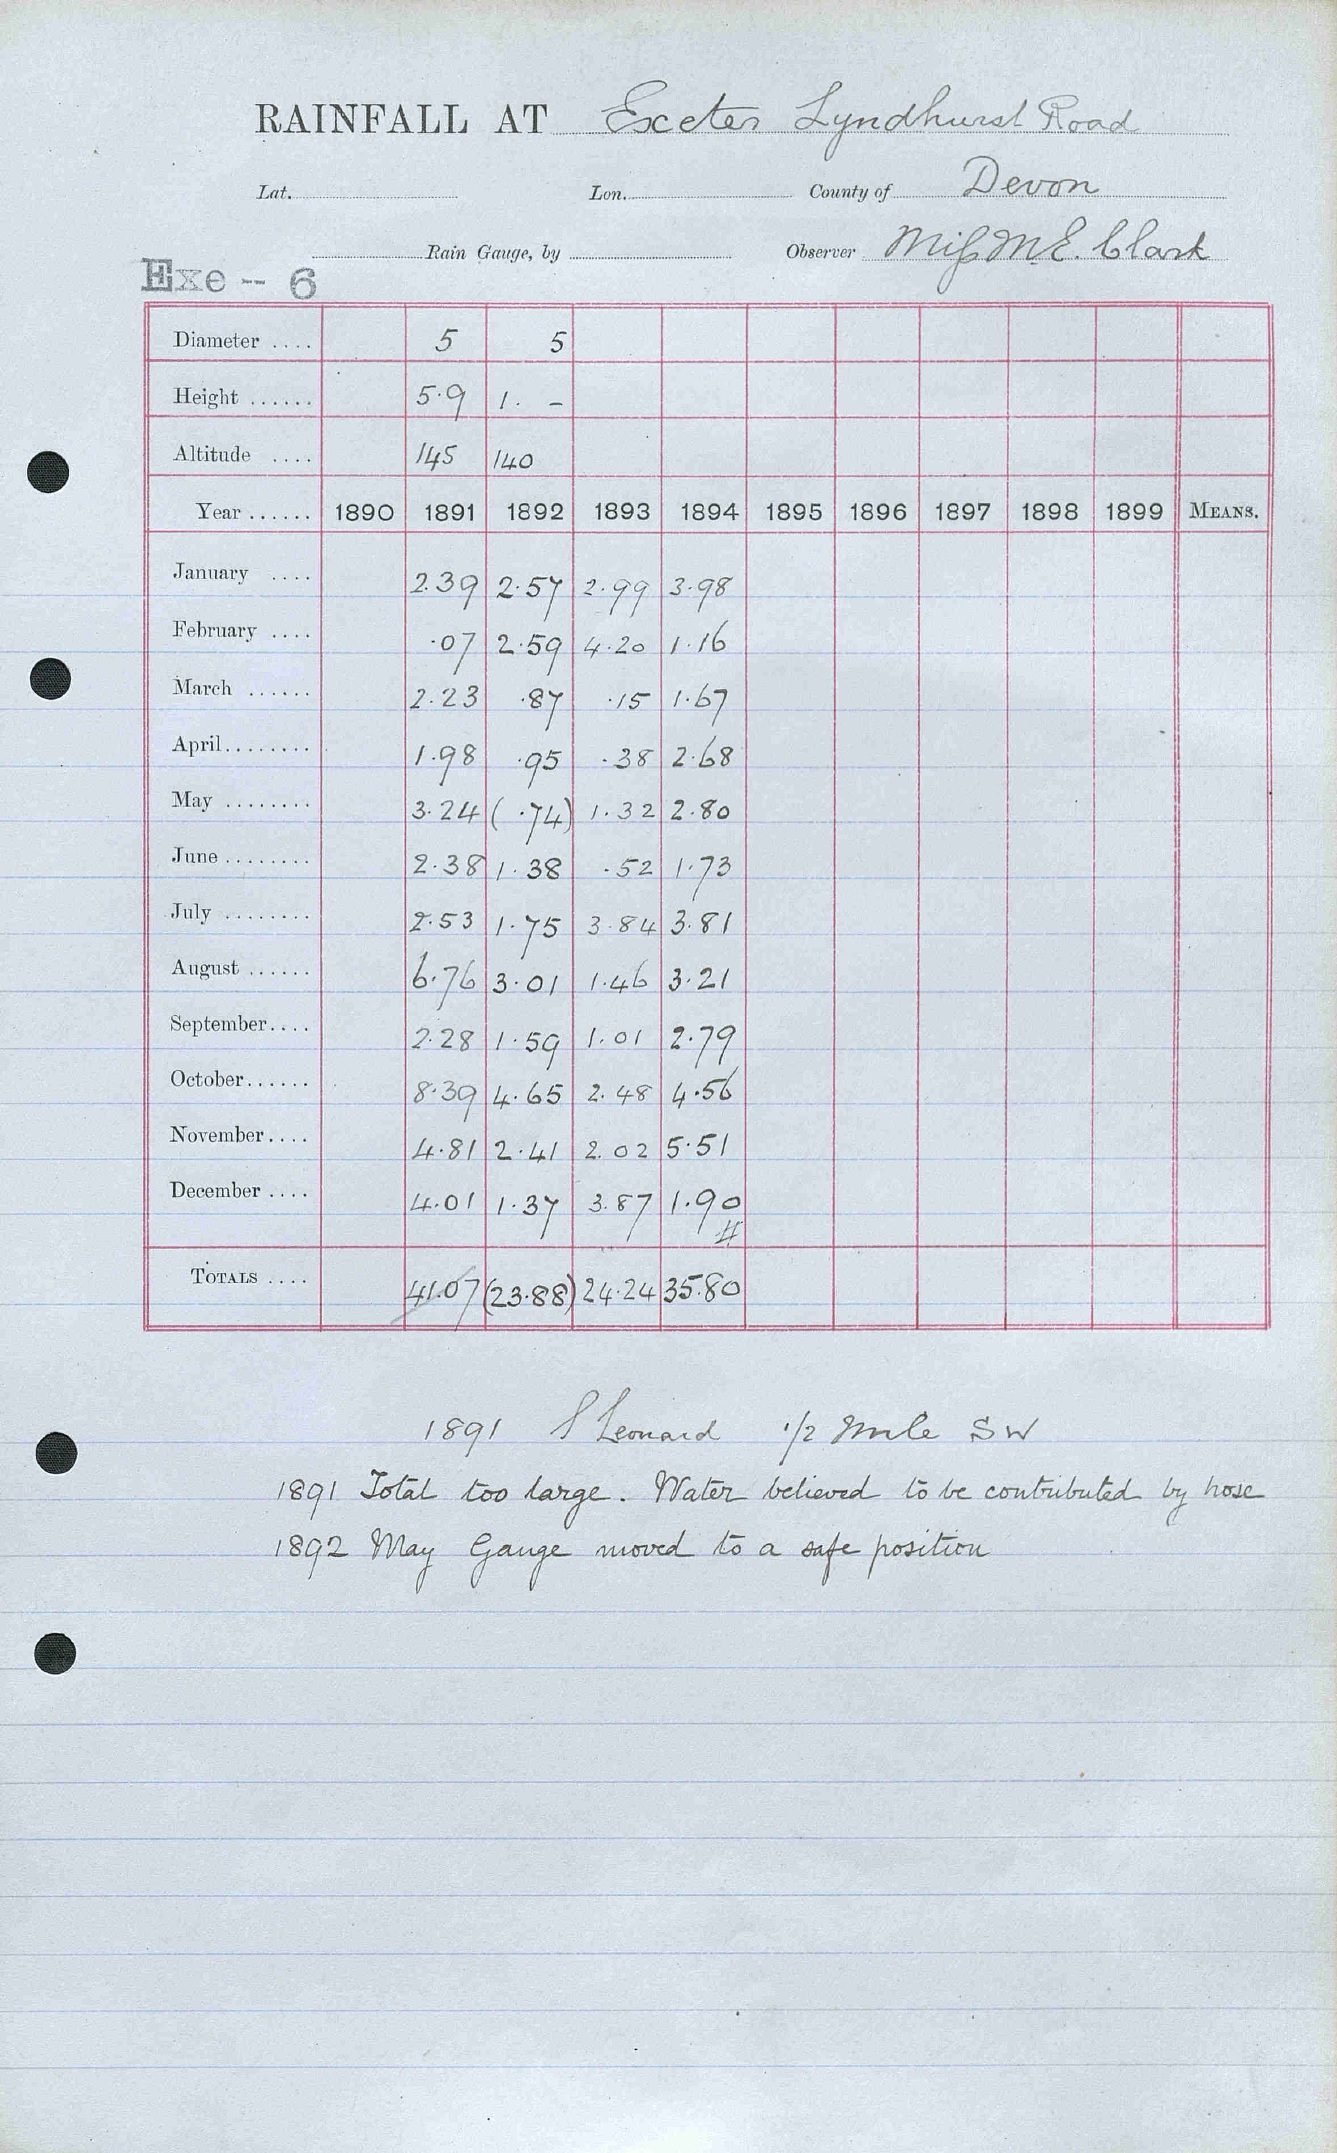 RAINFALL AT Exeter Lyndhurst Road
Lat. Lon. County of Devon
Rain Gauge, by Observer Miss M.E. Clark
Exe -- 6
Diameter .... 5 5
Height ...... 5.9 1. -
Altitude .... 145 140
Year ...... 1890 1891 1892 1893 1894 1895 1896 1897 1898 1899 MEANS.
January .... 2.39 2.57 2.99 3.98
February .... .07 2.59 4.20 1.16
March ...... 2.23 .87 .15 1.67
April........ 1.98 .95 .38 2.68
May ........ 3.24 ( .74) 1.32 2.80
June ........ 2.38 1.38 .52 1.73
July ........ 2.53 1.75 3.84 3.81
August ...... 6.76 3.01 1.46 3.21
September.... 2.28 1.59 1.01 2.79
October...... 8.39 4.65 2.48 4.56
November.... 4.81 2.41 2.02 5.51
December .... 4.01 1.37 3.87 1.90
TOTALS .... 41.07 (23.88) 24.24 35.80
1891 S Leonard 1/2 Mile SW
1891 Total too large. Water believed to be contributed by hose
1892 May Gauge moved to a safe position